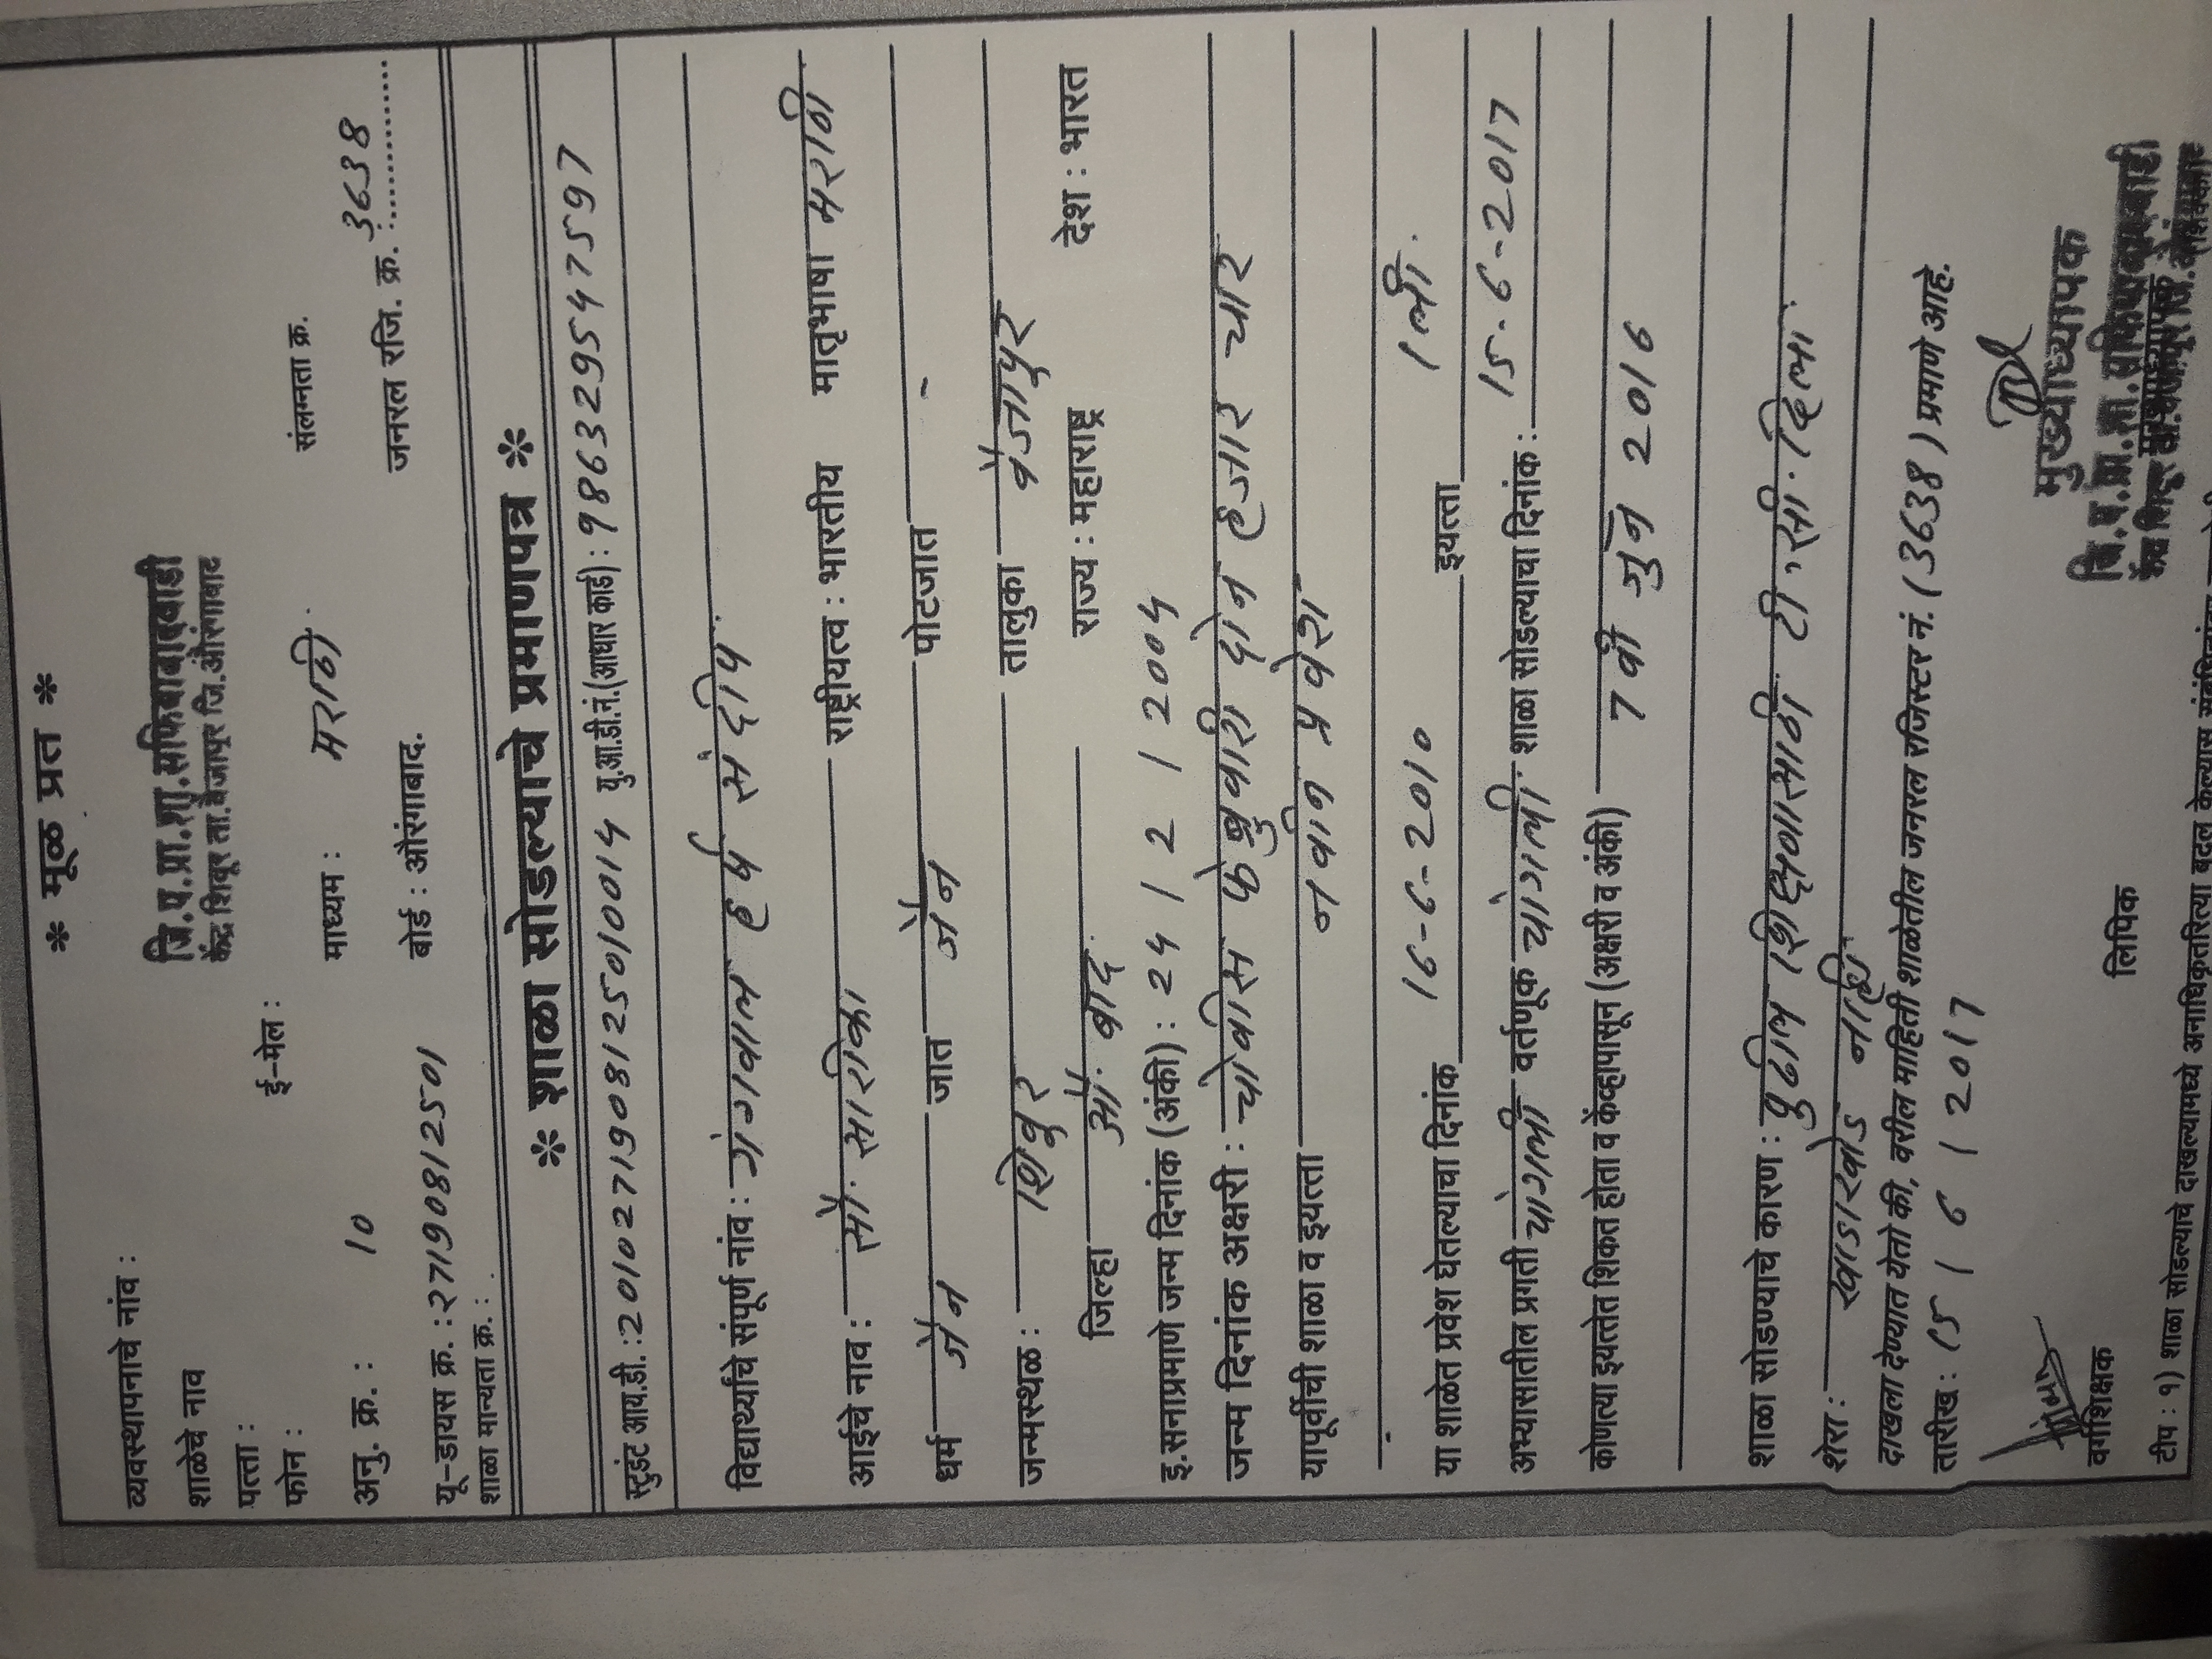 * मूळ प्रत *
व्यवस्थापनाचे नांव :
शाळेचे नाव जि.प.प्रा.शा.सफियाबादवाडी
पत्ता : केंद्र शिवूर ता.वैजापूर जि.औरंगाबाद
फोन : ई-मेल : संलग्नता क्र.
अनु. क्र. : 10 माध्यम : मराठी. जनरल रजि. क्र. : 3638
यू-डायस क्र. : 27190812501 बोर्ड : औरंगाबाद.
शाळा मान्यता क्र. :
* शाळा सोडल्याचे प्रमाणपत्र *
स्टुडंट आय.डी. : 2010271908125010014 यु.आ.डी.नं.(आधार कार्ड) : 986329547597
विद्यार्थ्याचे संपूर्ण नांव : गंगवाल हर्ष संदीप.
आईचे नाव : सौ. सारीका राष्ट्रीयत्व : भारतीय मातृभाषा मराठी
धर्म जैन जात जैन पोटजात -
जन्मस्थळ : शिवुर तालुका वैजापुर
जिल्हा औ. बाद. राज्य : महाराष्ट्र देश : भारत
इ.सनाप्रमाणे जन्म दिनांक (अंकी) : 24 / 2 / 2004
जन्म दिनांक अक्षरी : चोवीस फेब्रुवारी दोन हजार चार
यापूर्वीची शाळा व इयत्ता नवीन प्रवेश
या शाळेत प्रवेश घेतल्याचा दिनांक 16-6-2010 इयत्ता 1ली.
अभ्यासातील प्रगती चांगली वर्तणूक चांगली. शाळा सोडल्याचा दिनांक : 15-6-2017
कोणत्या इयत्तेत शिकत होता व केंव्हापासून (अक्षरी व अंकी) 7वी जुन 2016
शाळा सोडण्याचे कारण : पुढील शिक्षणासाठी टी.सी. दिला.
शेरा : खाडाखोड नाही.
दाखला देण्यात येतो की, वरील माहिती शाळेतील जनरल रजिस्टर नं. (3638) प्रमाणे आहे.
तारीख : 15 / 6 / 2017
मुख्याध्यापक
वर्गशिक्षक लिपिक जि.प.प्रा.शा.सफियाबादवाडी
टीप : १) शाळा सोडल्याचे दाखल्यामध्ये अनाधिकृतरित्या बदल केल्यास